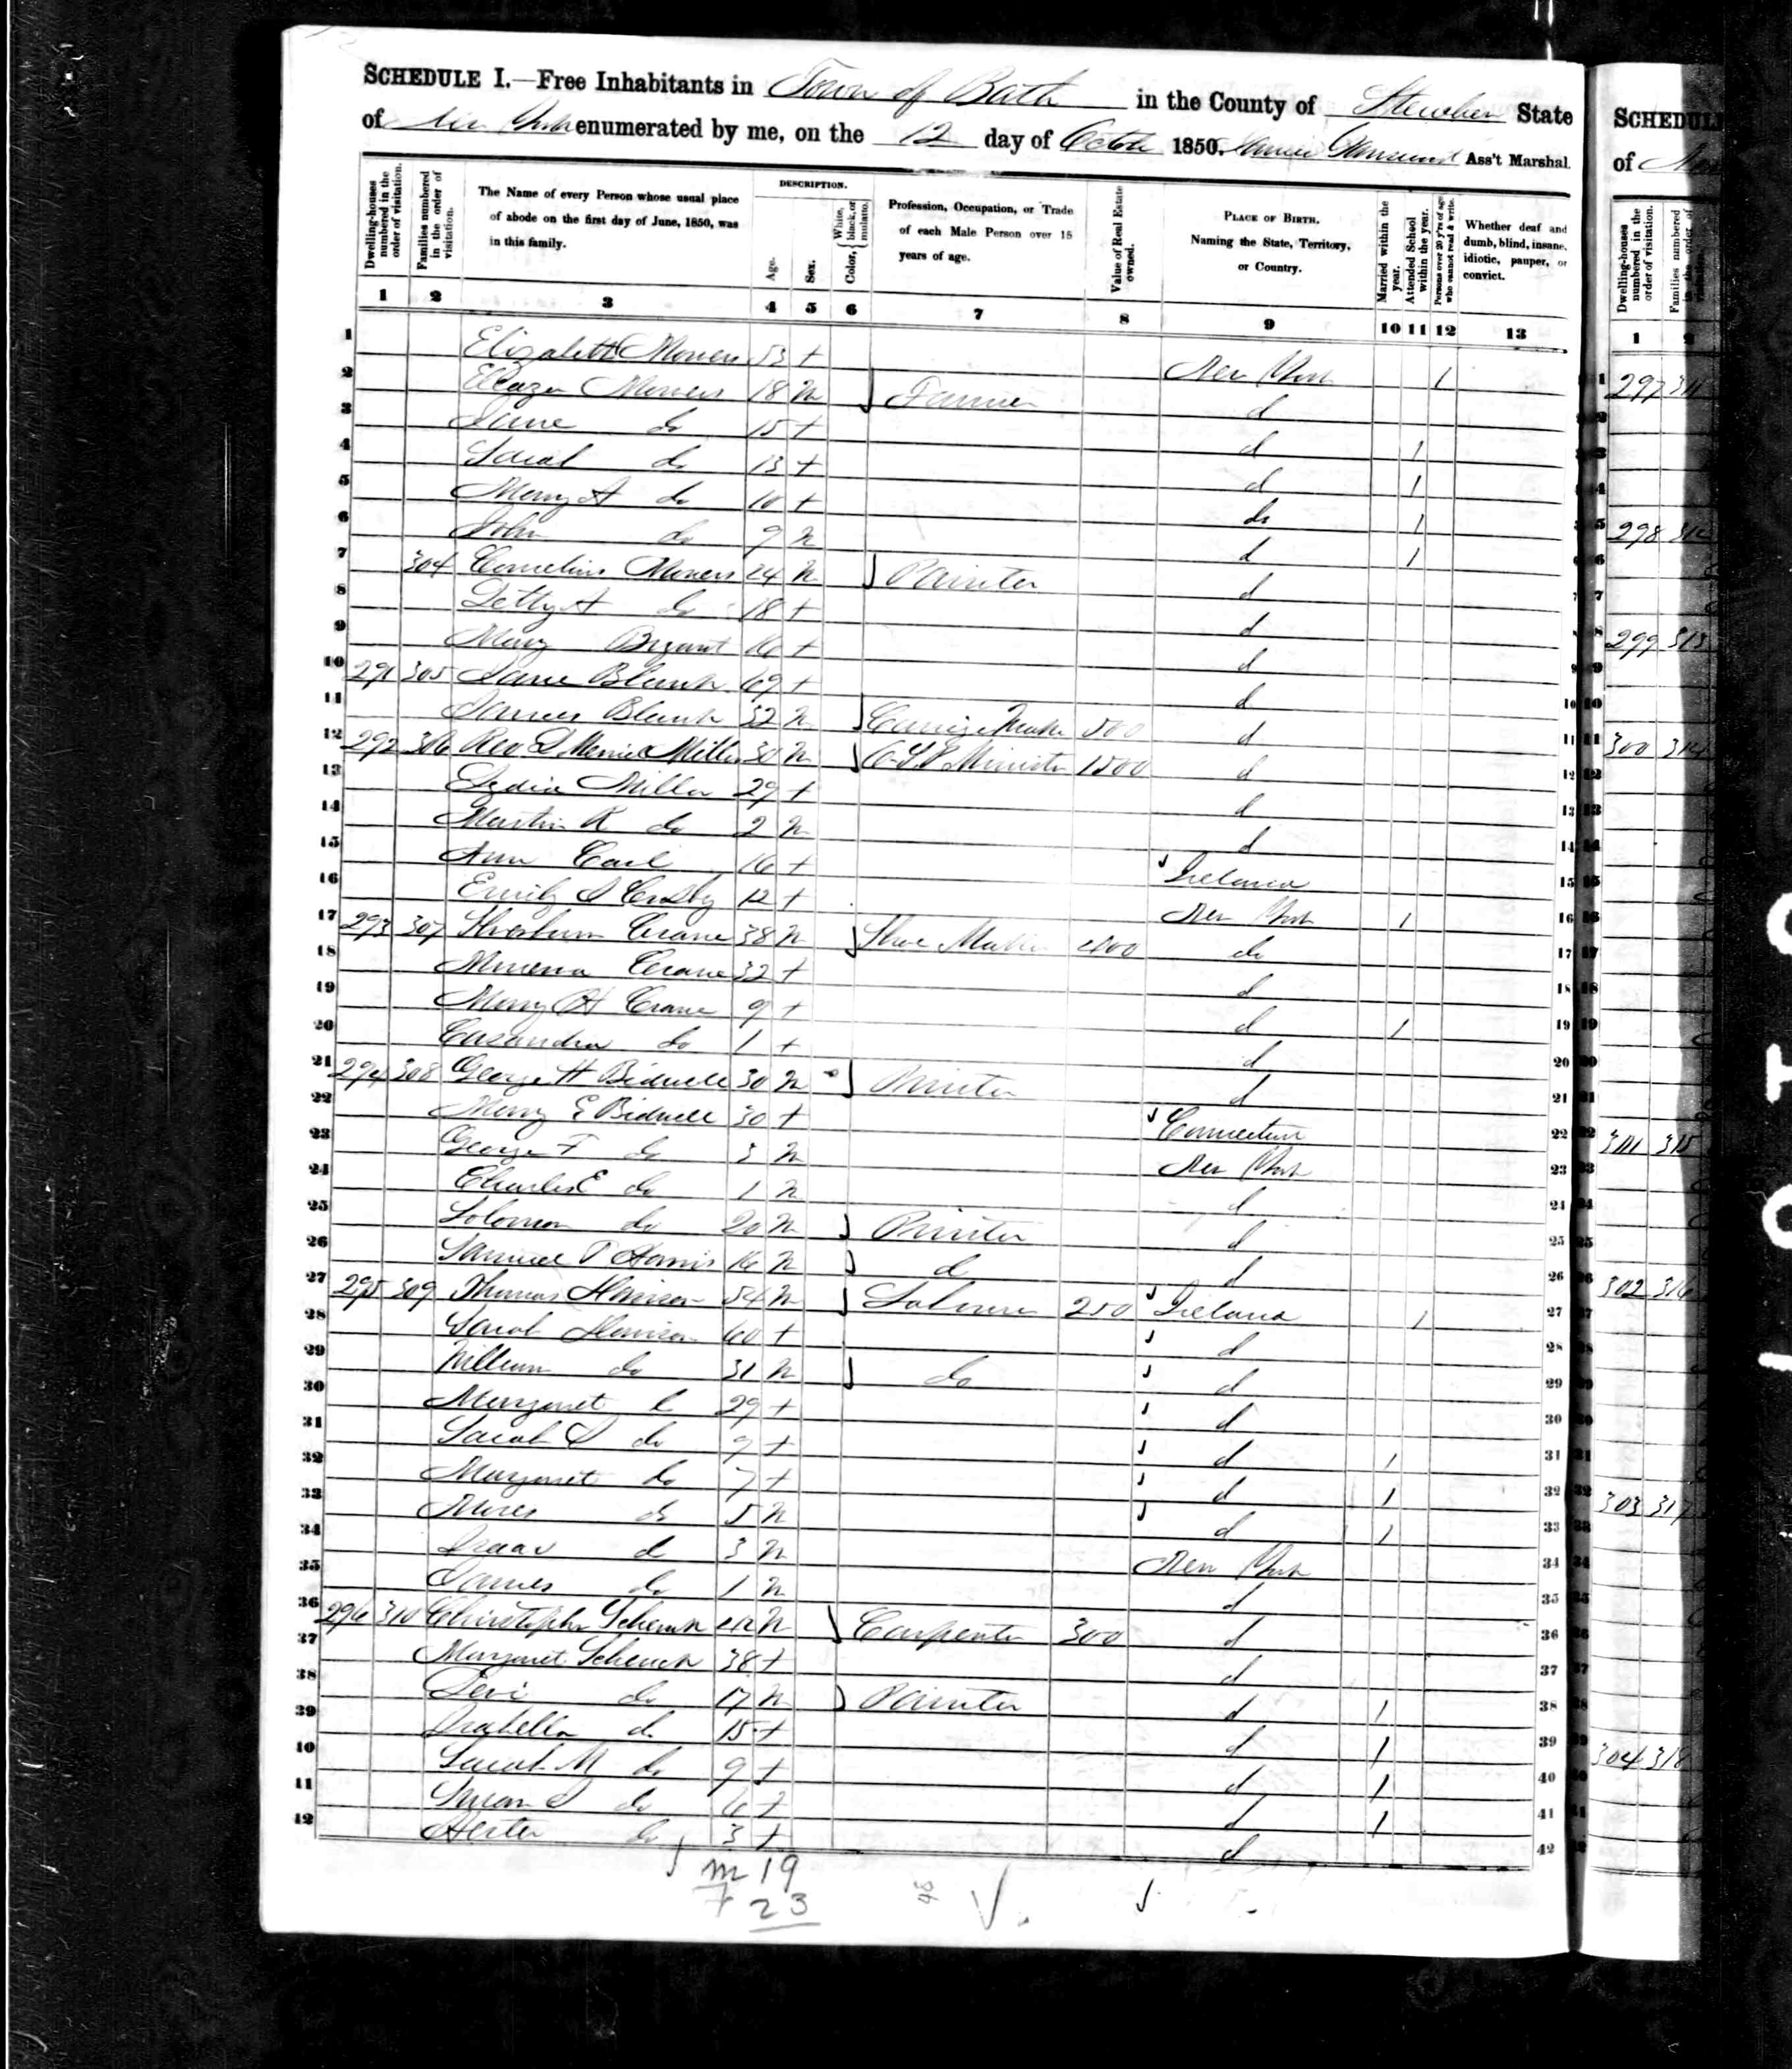 SCHEDULE I.—Free Inhabitants in Town of Bath in the County of Steuben State
of New York enumerated by me, on the 12 day of Octobr 1850. Ass't Marshal.
Dwelling-houses numbered in the order of visitation.
Families numbered in the order of visitation.
The Name of every Person whose usual place of abode on the first day of June, 1850, was in this family.
DESCRIPTION.
Age.
Sex.
Color, { White, black, or mulatto.
Profession, Occupation, or Trade of each Male Person over 15 years of age.
Value of Real Estate owned.
PLACE OF BIRTH. Naming the State, Territory, or Country.
Married within the year.
Attended School within the year.
Persons over 20 y'rs of age who cannot read & write.
Whether deaf and dumb, blind, insane, idiotic, pauper, or convict.
1 2 3 4 5 6 7 8 9 10 11 12 13
1 Elizabeth 53 f New York 1
2 18 m Farmer d
3 Jane do 15 f d 1
4 Sarah do 13 f d 1
5 Mary A do 10 f do 1
6 John do 9 m d 1
7 304 Cornelius 24 m Painter d
8 Letty A do 18 f d
9 Mary Bryant 16 f d
10 291 305 Jane 69 f d
11 James 32 m Carriage Maker 500 d
12 292 306 Rev L Merrill Miller 30 m O.S.P Minister 1500 d
13 Lydia Miller 29 f d
14 Martin R do 2 m d
15 Ann Carl 16 f Ireland
16 Emily Crosby 12 f New York 1
17 293 307 Crane 38 m Shoe Maker do
18 Minerva Crane 32 f d
19 Mary H Crane 9 f d 1
20 Cazandra do 1 f d
21 294 308 George H Bidwell 30 m Printer d
22 Mary E Bidwell 30 f Connecticut
23 George F do 3 m New York
24 Charles E do 1 m d
25 Solomon do 20 m Printer d
26 Samuel P Harris 16 m d d
27 295 309 Thomas Harrison 54 m Laborer 250 Ireland 1
28 Sarah Harrison 60 f d
29 William do 31 m do d
30 Margaret do 29 f d
31 Sarah J do 9 f d 1
32 Margaret do 7 f d 1
33 do 5 m d 1
34 Isaac do 3 m New York
35 James do 1 m d
36 296 310 Christopher Schenck 42 m Carpenter 300 d
37 Margaret Schenck 38 f d
38 Levi do 17 m Painter d 1
39 Isabella do 15 f d 1
40 Sarah M do 9 f d 1
41 Susan do 6 f d 1
42 Hester do 3 f d
m 19
f 23
SCHEDUL
of New
Dwelling-houses numbered in the order of visitation.
Families numbered in the order of visitation.
1 2
297 311
298 312
299 313
300 314
301 315
302 316
303 317
304 318